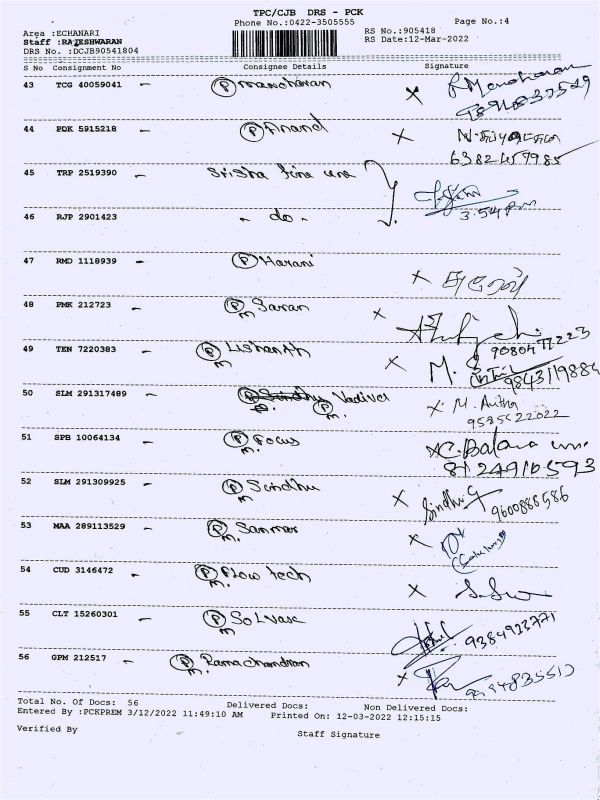 TPC/CJB DRS - PCK
Phone No.:0422-3505555 Page No.:4
Area :ECHANARI RS No.:905418
Staff :RAJESHWARAN RS Date:12-Mar-2022
DRS No. :DCJB90541804
S No Consignment No Consignee Details Signature
43 TCG 40059041 - P Manoharan X
44 PDK 5915218 - P Anand X
6382457985
45 TRP 2519390 - Srisha fine
3.54 pm
46 RJP 2901423 - do -
47 RMD 1118939 - P Harani X
48 PMK 212723 - P Saran X
m
9080477223
49 TEN 7220383 - P Lishanth X M.
m 9843119884
50 SLM 291317489 - P Vadivel X M. Anitha
m. 9585522022
51 SPB 10064134 - P Focus
m. 8124910593
52 SLM 291309925 - P Sindhu X Sindhu G
m. 9600886586
53 MAA 289113529 - P Sanmar X
m.
54 CUD 3146472 - P Flow tech X
m.
55 CLT 15260301 - P Solvase
m 9384923771
56 GPM 212517 - P Ramachandran X
m.
Total No. Of Docs: 56 Delivered Docs: Non Delivered Docs:
Entered By :PCKPREM 3/12/2022 11:49:10 AM Printed On: 12-03-2022 12:15:15
Verified By Staff Signature